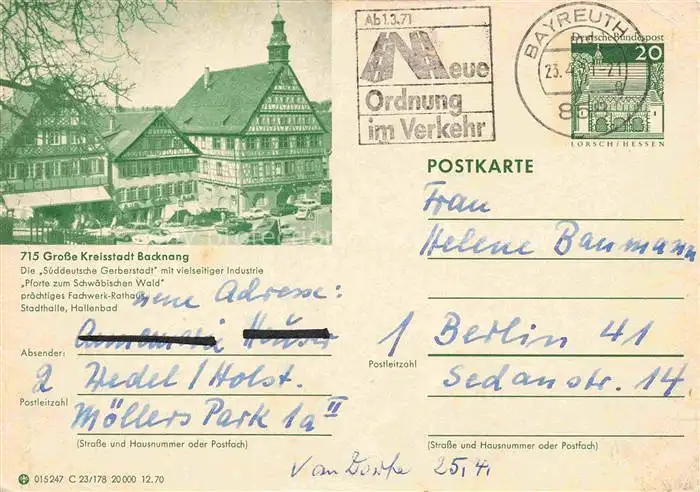 Ab 1.3.71
Neue
Ordnung
im Verkehr
BAYREUTH
Deutsche Bundespost
20
LORSCH/HESSEN
715 Große Kreisstadt Backnang
Die „Süddeutsche Gerberstadt" mit vielseitiger Industrie
„Pforte zum Schwäbischen Wald"
prächtiges Fachwerk-Rathaus,
Stadthalle, Hallenbad
neue Adresse:
Absender:
2 Wedel / Holst.
Postleitzahl
Möllers Park 1a II
(Straße und Hausnummer oder Postfach)
015247 C 23/178 20000 12.70
POSTKARTE
Frau
Helene Baumann
1 Berlin 41
Postleitzahl
Sedanstr. 14
(Straße und Hausnummer oder Postfach)
25.4.